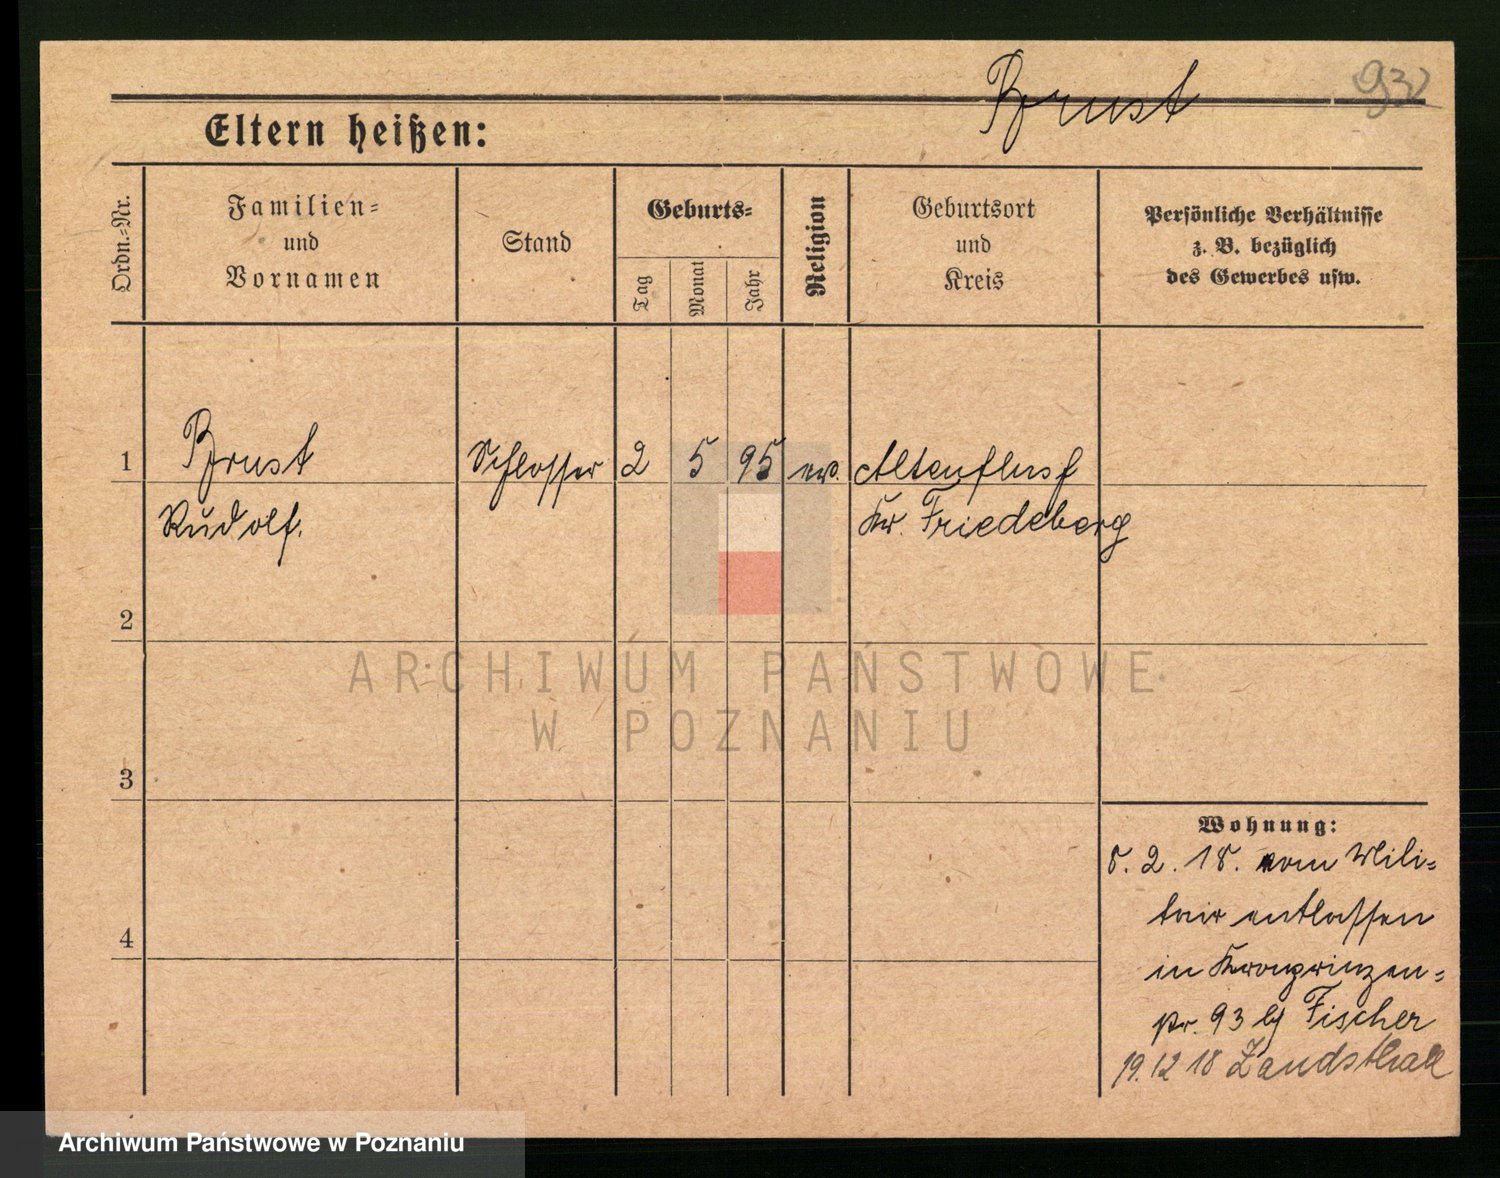 Brust
932
Eltern heißen:
Ordn.-Nr.
Familien-
und
Vornamen
Stand
Geburts-
Tag
Monat
Jahr
Religion
Geburtsort
und
Kreis
Persönliche Verhältnisse
z. B. bezüglich
des Gewerbes usw.
1
Brust
Schlosser
2
5
95
ev.
Altenfluss
Rudolf.
Kr. Friedeberg
2
ARCHIWUM PAŃSTWOWE
W POZNANIU
3
Wohnung:
5. 2. 18. vom Mili-
tair entlassen
4
in Kronprinzen-
str. 93 bj Fischer
19.12 18
Archiwum Państwowe w Poznaniu